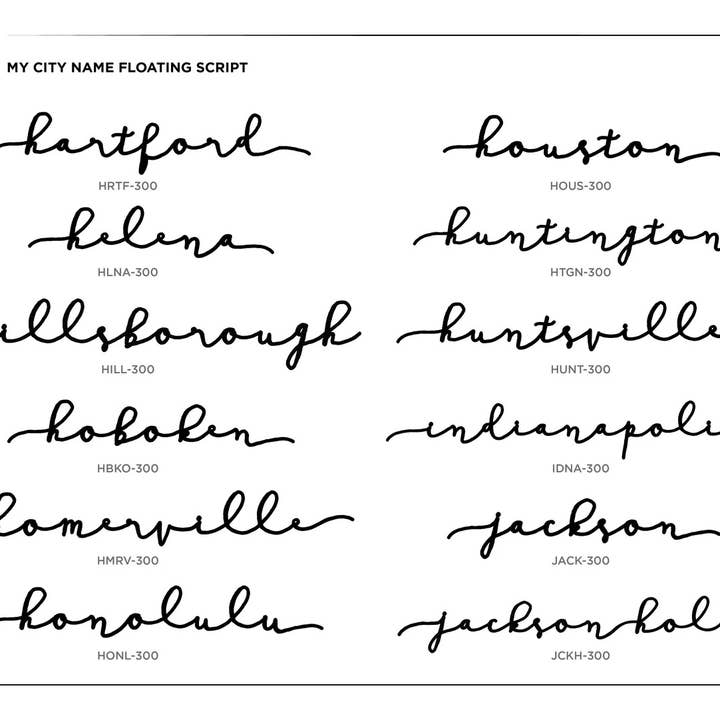 MY CITY NAME FLOATING SCRIPT
hartford
HRTF-300
helena
HLNA-300
illsborough
HILL-300
hoboken
HBKO-300
homerville
HMRV-300
honolulu
HONL-300
houston
HOUS-300
huntington
HTGN-300
huntsville
HUNT-300
indianapoli
IDNA-300
jackson
JACK-300
jackson hol
JCKH-300